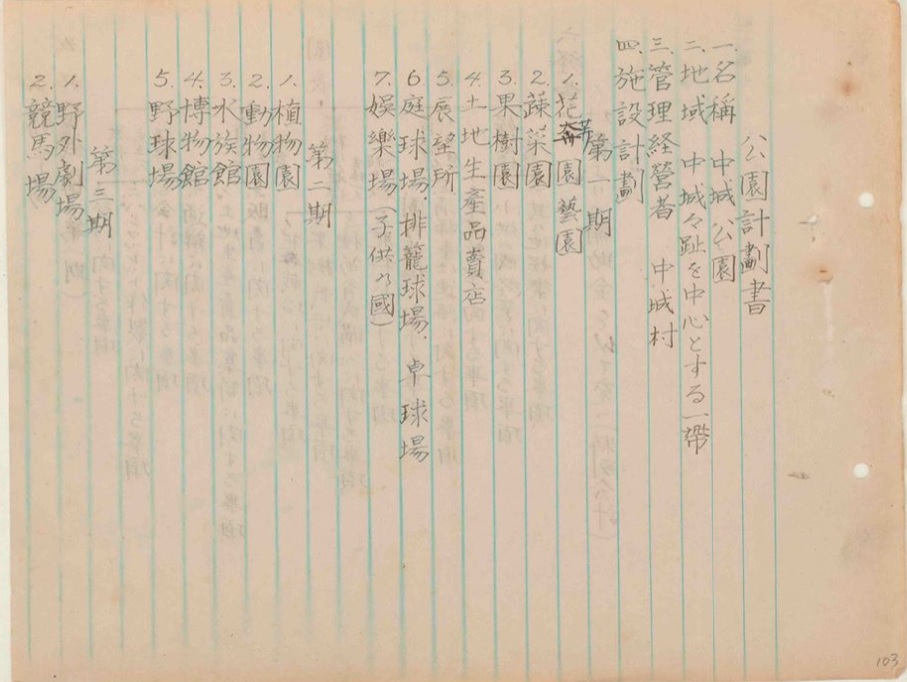 公園計劃書
一、名稱　中城公園
二、地域　中城々趾を中心とする一帶
三、管理経営者　中城村
四、施設計劃
第一期
1、花卉園藝園
2、蔬菜園
3、果樹園
4、土地生産品賣店
5、展望所
6、庭球場、排籠球場、卓球場
7、娯樂場（子供の國）
第二期
1、植物園
2、動物園
3、水族館
4、博物館
5、野球場
第三期
1、野外劇場
2、競馬場
103